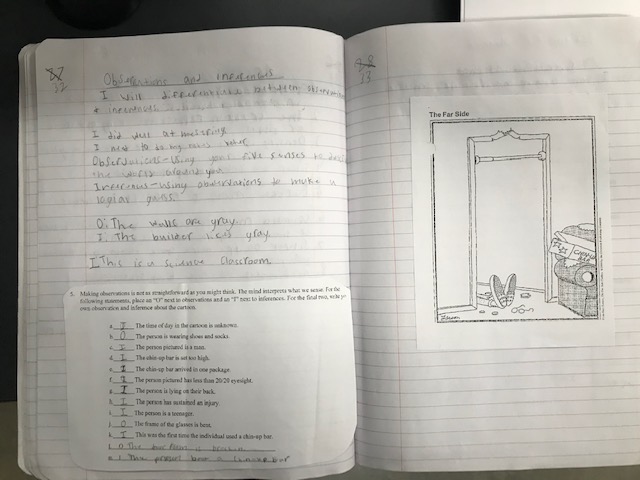 32
Observations and inferences
I will differentiate between observations
& inferences
I did well at
I need to
Observations - Using your five senses to
the world around you.
Inferences - using observations to make a
logical guess.
O: The walls are gray.
I: The builder likes gray.
I This is a science classroom.
5. Making observations is not as straightforward as you might think. The mind interprets what we sense. For the
following statements, place an "O" next to observations and an "I" next to inferences. For the final two, write your
own observation and inference about the cartoon.
a. I The time of day in the cartoon is unknown.
b. O The person is wearing shoes and socks.
c. I The person pictured is a man.
d. I The chin-up bar is set too high.
e. I The chin-up bar arrived in one package.
f. I The person pictured has less than 20/20 eyesight.
g. I The person is lying on their back.
h. I The person has sustained an injury.
i. I The person is a teenager.
j. O The frame of the glasses is bent.
k. I This was the first time the individual used a chin-up bar.
l. O The door frame is broken
m. I The person
33
The Far Side